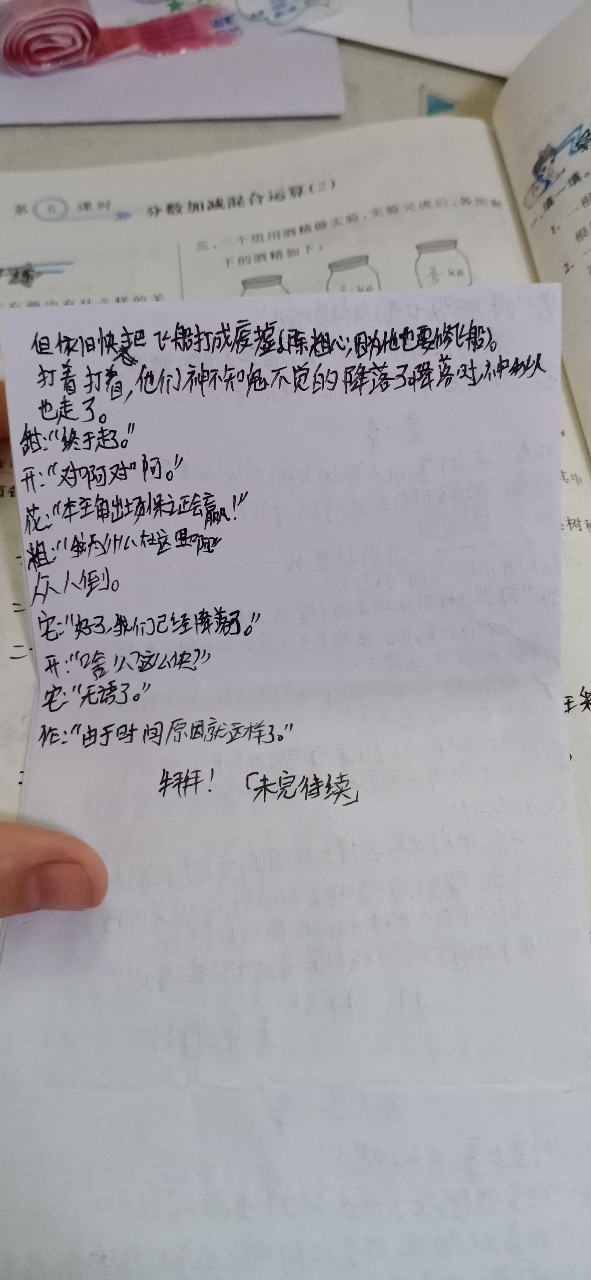 第6课时 分数加减混合运算(2)
三、三个组用酒精做实验,实验完成后,各组剩
下的酒精如下:
但依旧快把飞船打成废墟(除粗心,因为他也要修飞船)。
打着打着,他们神不知鬼不觉的降落了降落时,神秘人
也走了。
钳:“终于走了。”
开:“对啊对啊。”
花:“本主角出场保证会赢!”
粗:“我为什么在这里啊”
众人倒。
宅:“好了,我们已经降落了。”
开:“啥!这么快?”
宅:“无语了。”
作:“由于时间原因就这样了。”
拜拜!「未完待续」